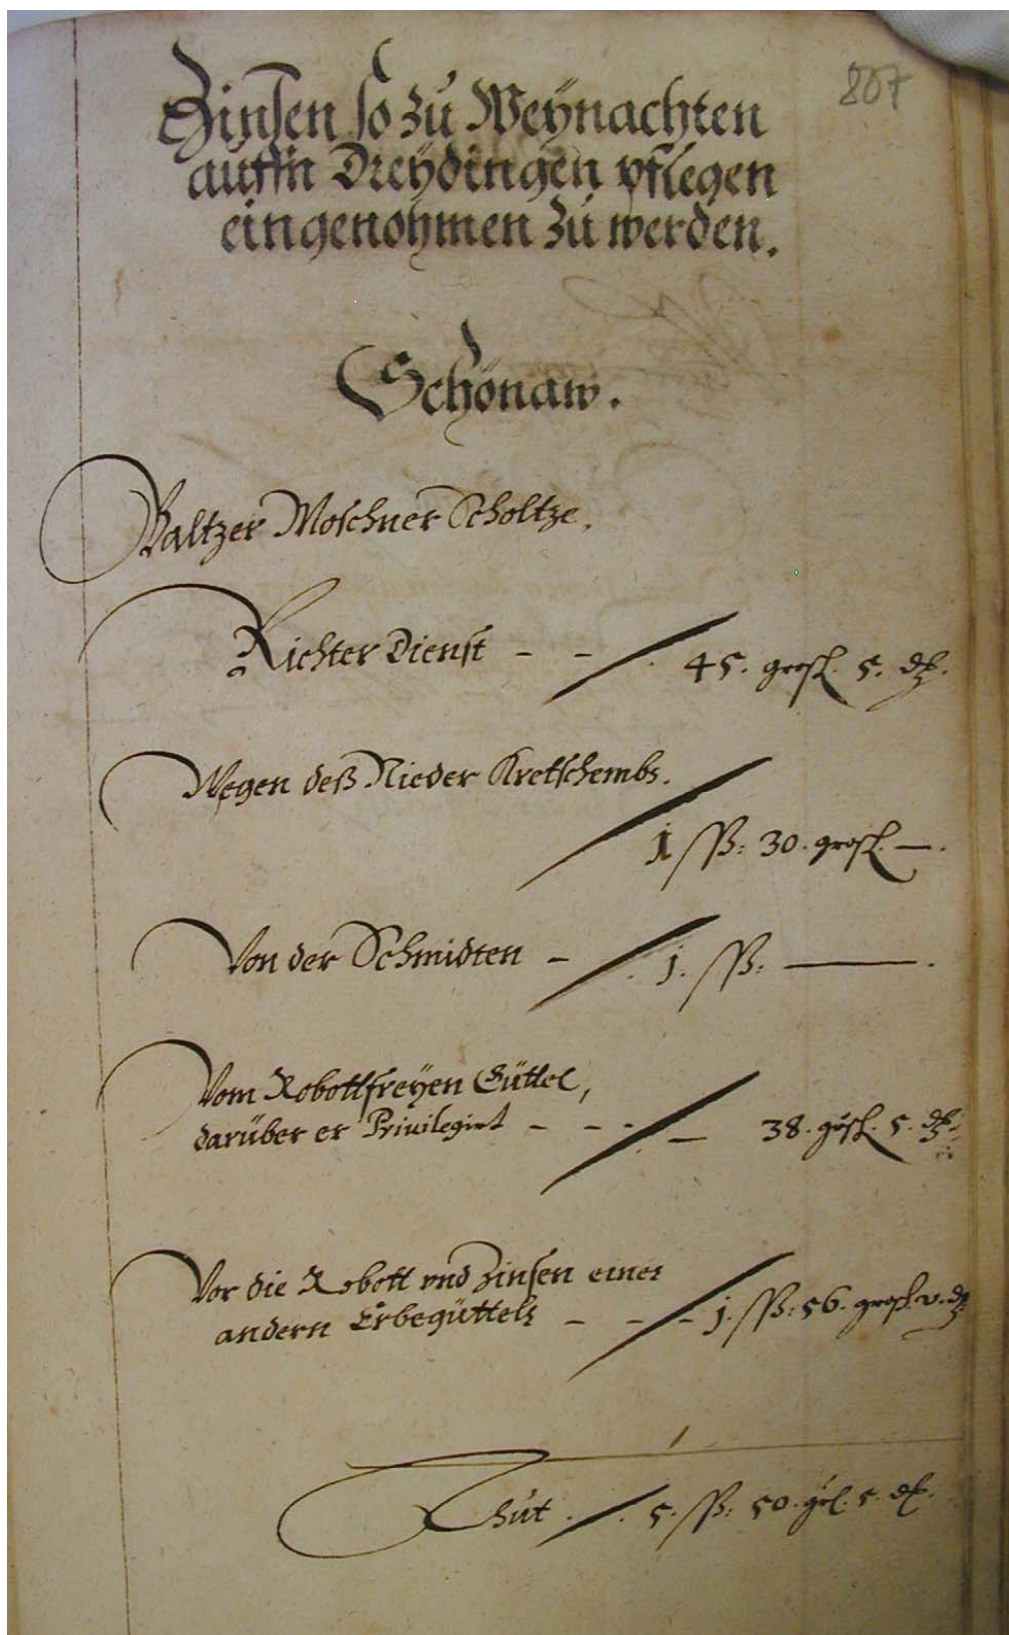 807
Zinsen so zu Weÿnachten
auffn Dreÿdingen pflegen
eingenohmen zu werden.
Schönaw.
Baltzer Moschner Scholtze.
Richter Dienst - - / . 45. grosl. 5. dl.
Wegen deß Nieder Kretschembs.
/ 1 ßß: 30. grosl. —.
Von der Schmidten - / . j. ßß: ——— .
Vom Robottfreÿen Güttel,
darüber er Priuilegirt - - - / — 38. grosl. 5. dl.
Vor die Robott vnd Zinsen eines
andern Erbegüttels - - / - j. ßß: 56. grosl. v. dl.
Thut . / . 5. ßß: 50. grl. 5. dl.